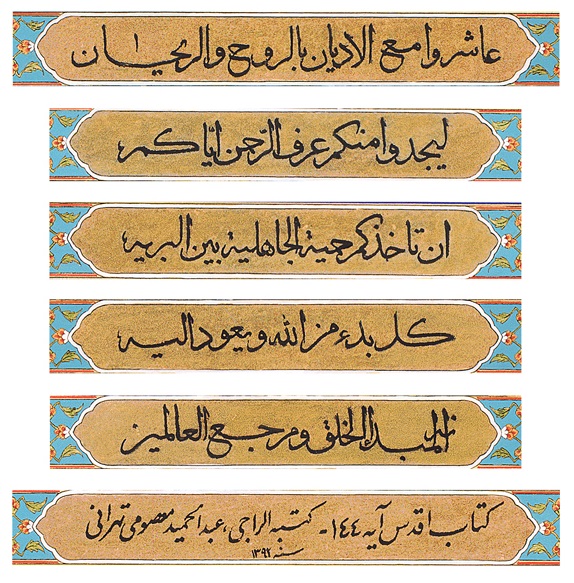 عاشروا مع الاديان بالروح والريحان
ليجدوا منكم عرف الرّحمن ايّاكم
ان تاخذكم حمية الجاهلية بين البريه
كل بدء من الله ويعود اليه
انه لمبدء الخلق ومرجع العالمين
كتاب اقدس آيه ١٤٤ - كتبه الراجي، عبدالحميد معصومی تهرانی
سنه ١٣٩٢